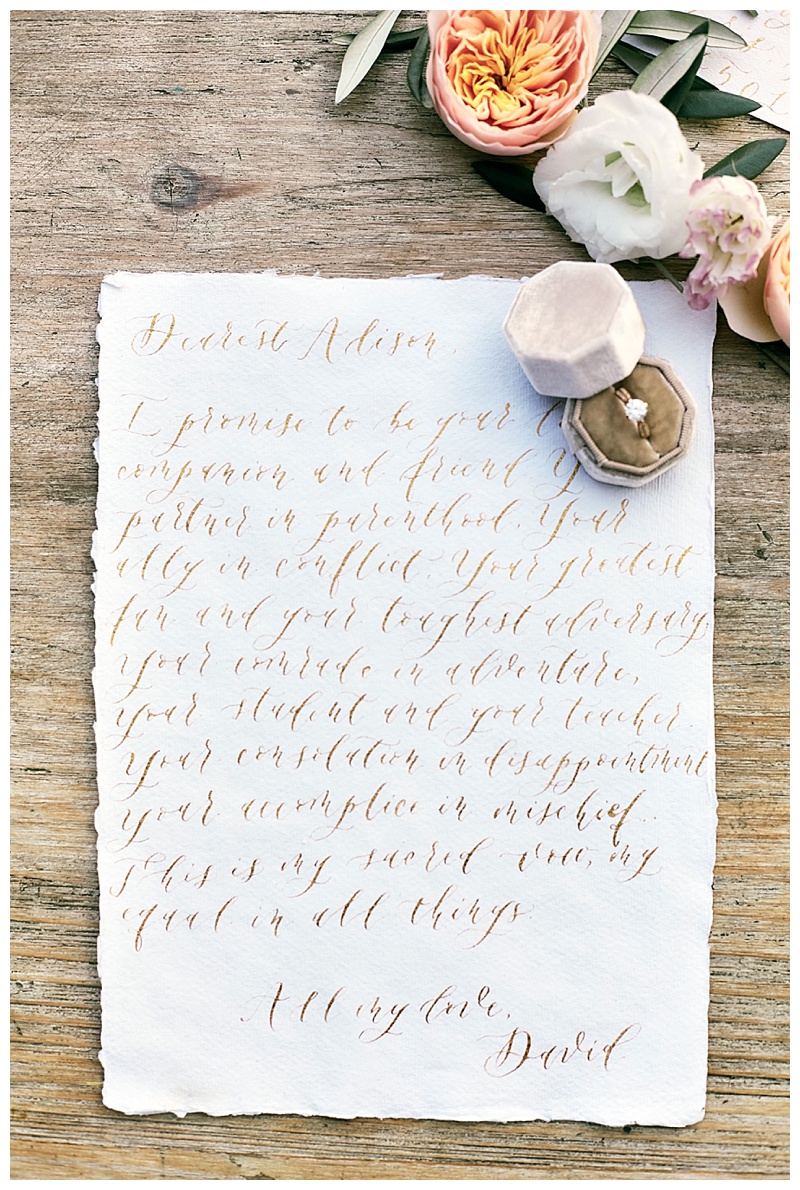 Dearest Adison,
I promise to be your
companion and friend
partner in parenthood. Your
ally in conflict. Your greatest
fan and your toughest adversary.
Your comrade in adventure,
your student and your teacher.
Your consolation in disappointment
your accomplice in mischief..
This is my sacred vow, my
equal in all things.
All my love,
David